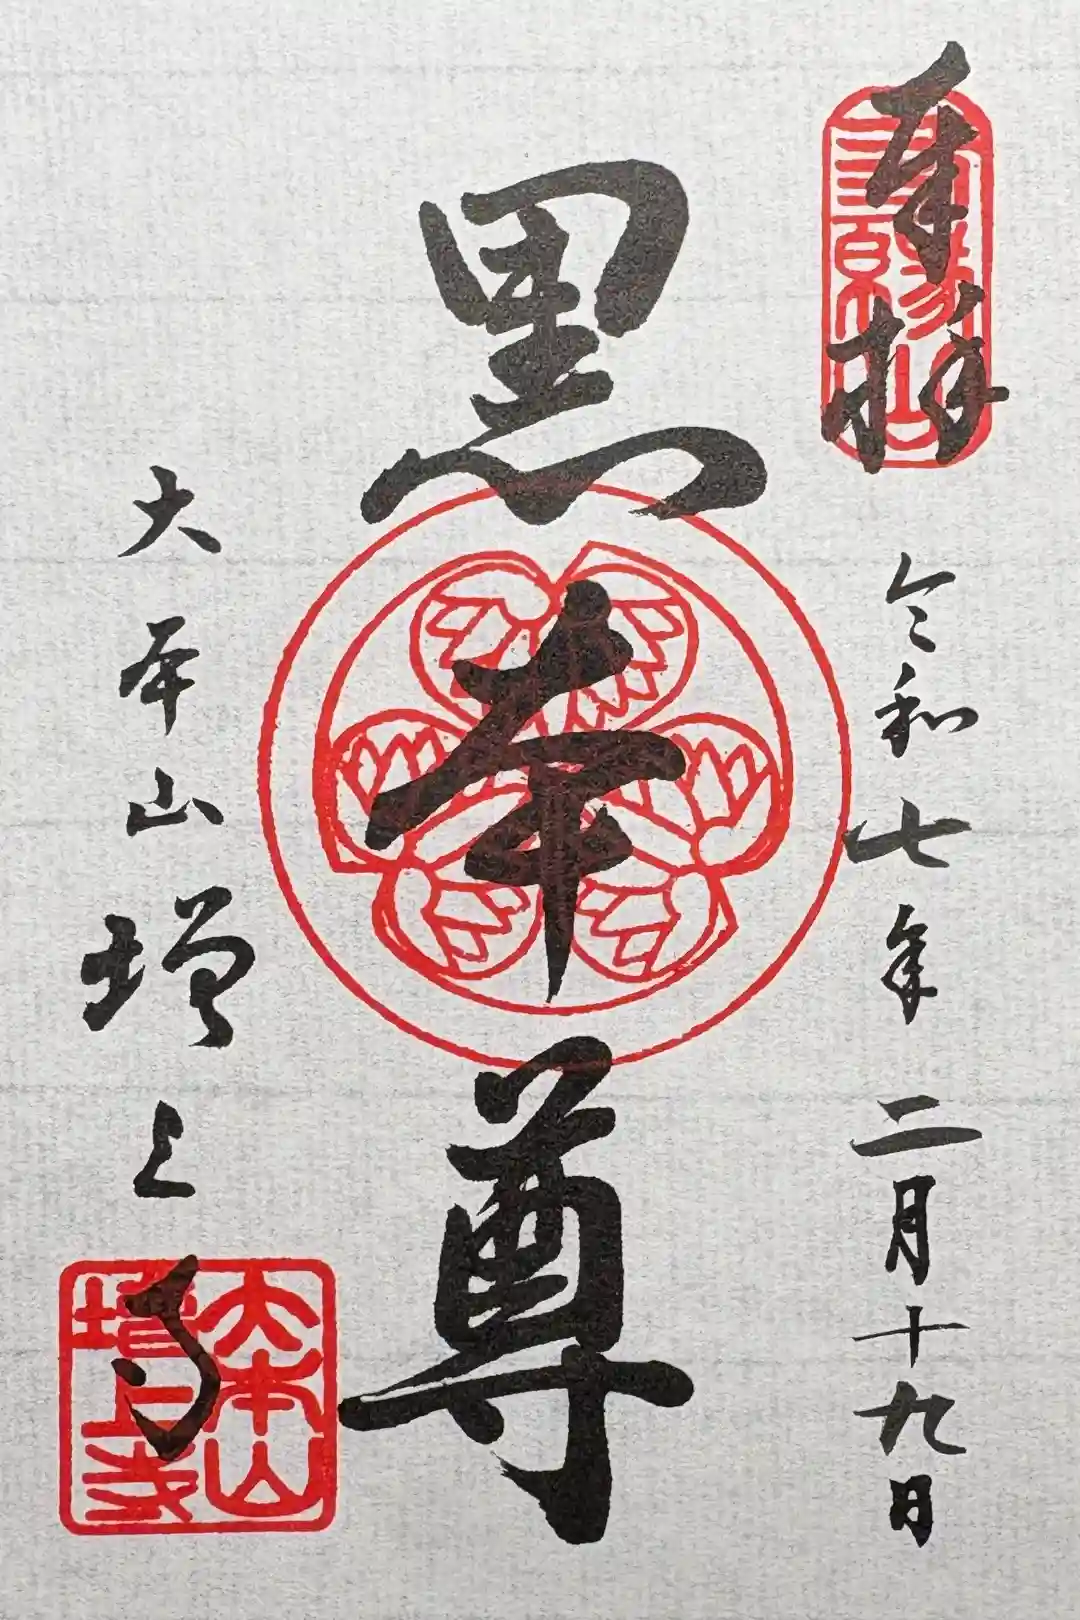 奉拝
令和七年二月十九日
黒本尊
大本山増上寺
三縁山
大本山
増上寺